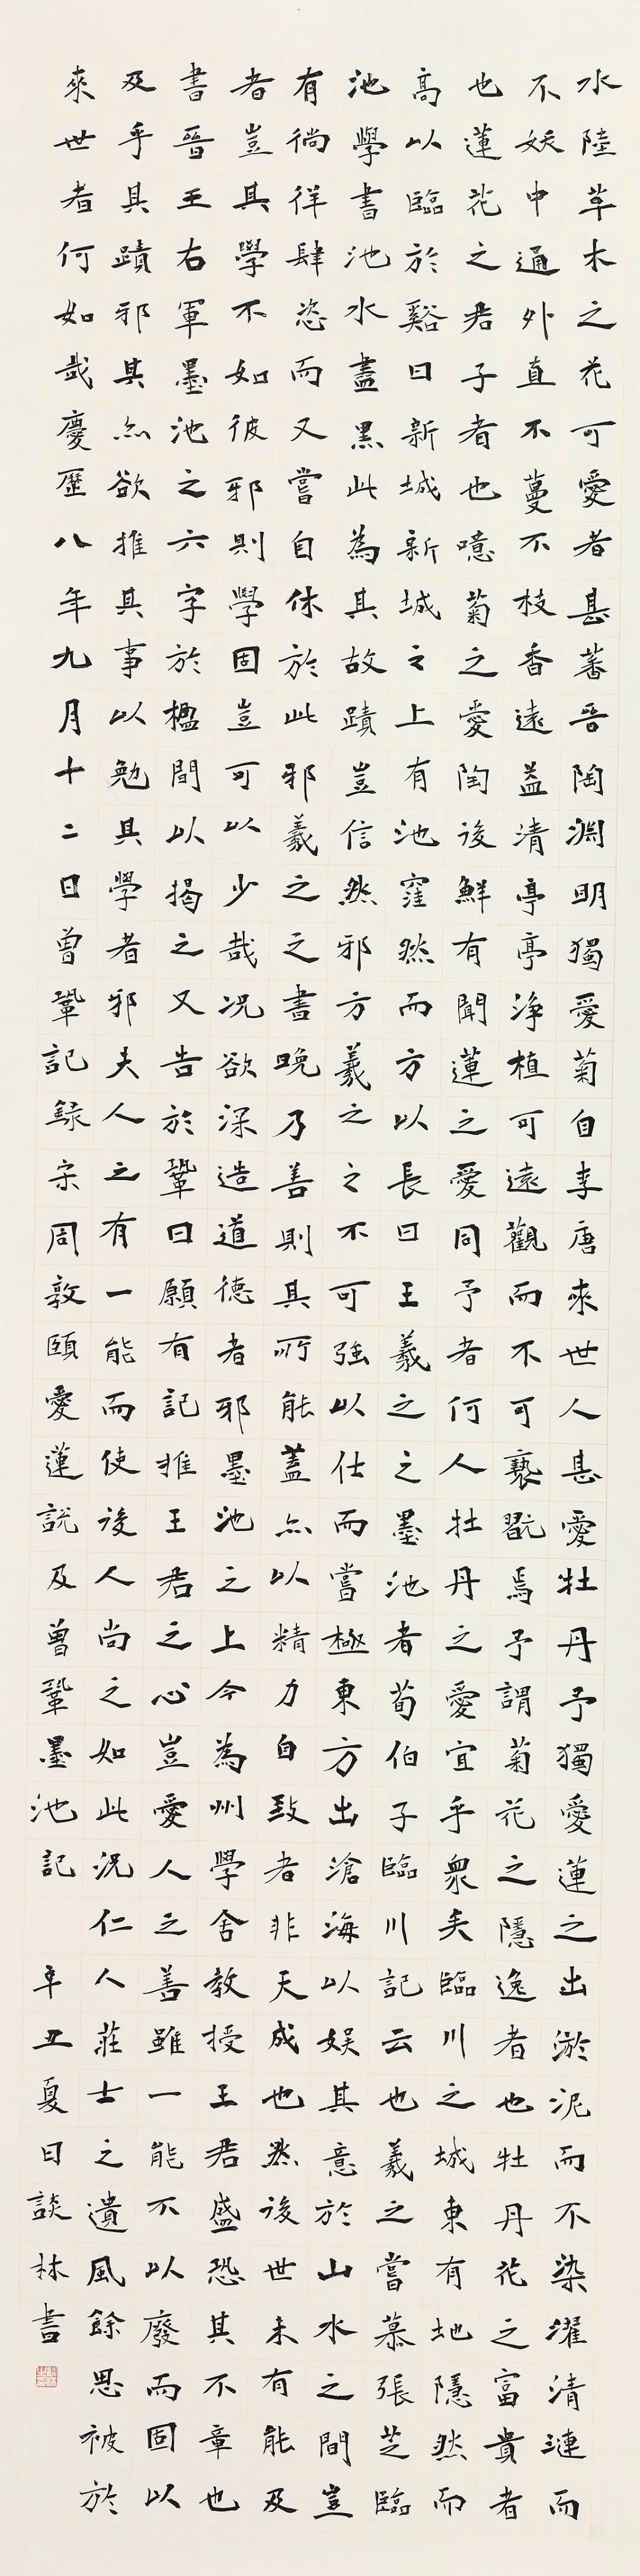 水陸草木之花可愛者甚蕃晉陶淵明獨愛菊自李唐來世人甚愛牡丹予獨愛蓮之出淤泥而不染濯清漣而
不妖中通外直不蔓不枝香遠益清亭亭淨植可遠觀而不可褻翫焉予謂菊花之隱逸者也牡丹花之富貴者
也蓮花之君子者也噫菊之愛陶後鮮有聞蓮之愛同予者何人牡丹之愛宜乎眾矣臨川之城東有地隱然而
高以臨於谿曰新城新城之上有池窪然而方以長曰王羲之之墨池者荀伯子臨川記云也羲之嘗慕張芝臨
池學書池水盡黑此為其故蹟豈信然邪方羲之之不可強以仕而嘗極東方出滄海以娛其意於山水之間豈
有徜徉肆恣而又嘗自休於此邪羲之之書晚乃善則其所能蓋亦以精力自致者非天成也然後世未有能及
者豈其學不如彼邪則學固豈可以少哉況欲深造道德者邪墨池之上今為州學舍教授王君盛恐其不章也
書晉王右軍墨池之六字於楹間以揭之又告於鞏曰願有記推王君之心豈愛人之善雖一能不以廢而固以
及乎其蹟邪其亦欲推其事以勉其學者邪夫人之有一能而使後人尚之如此況仁人莊士之遺風餘思被於
來世者何如哉慶歷八年九月十二日曾鞏記錄宋周敦頤愛蓮說及曾鞏墨池記 辛丑夏日談林書